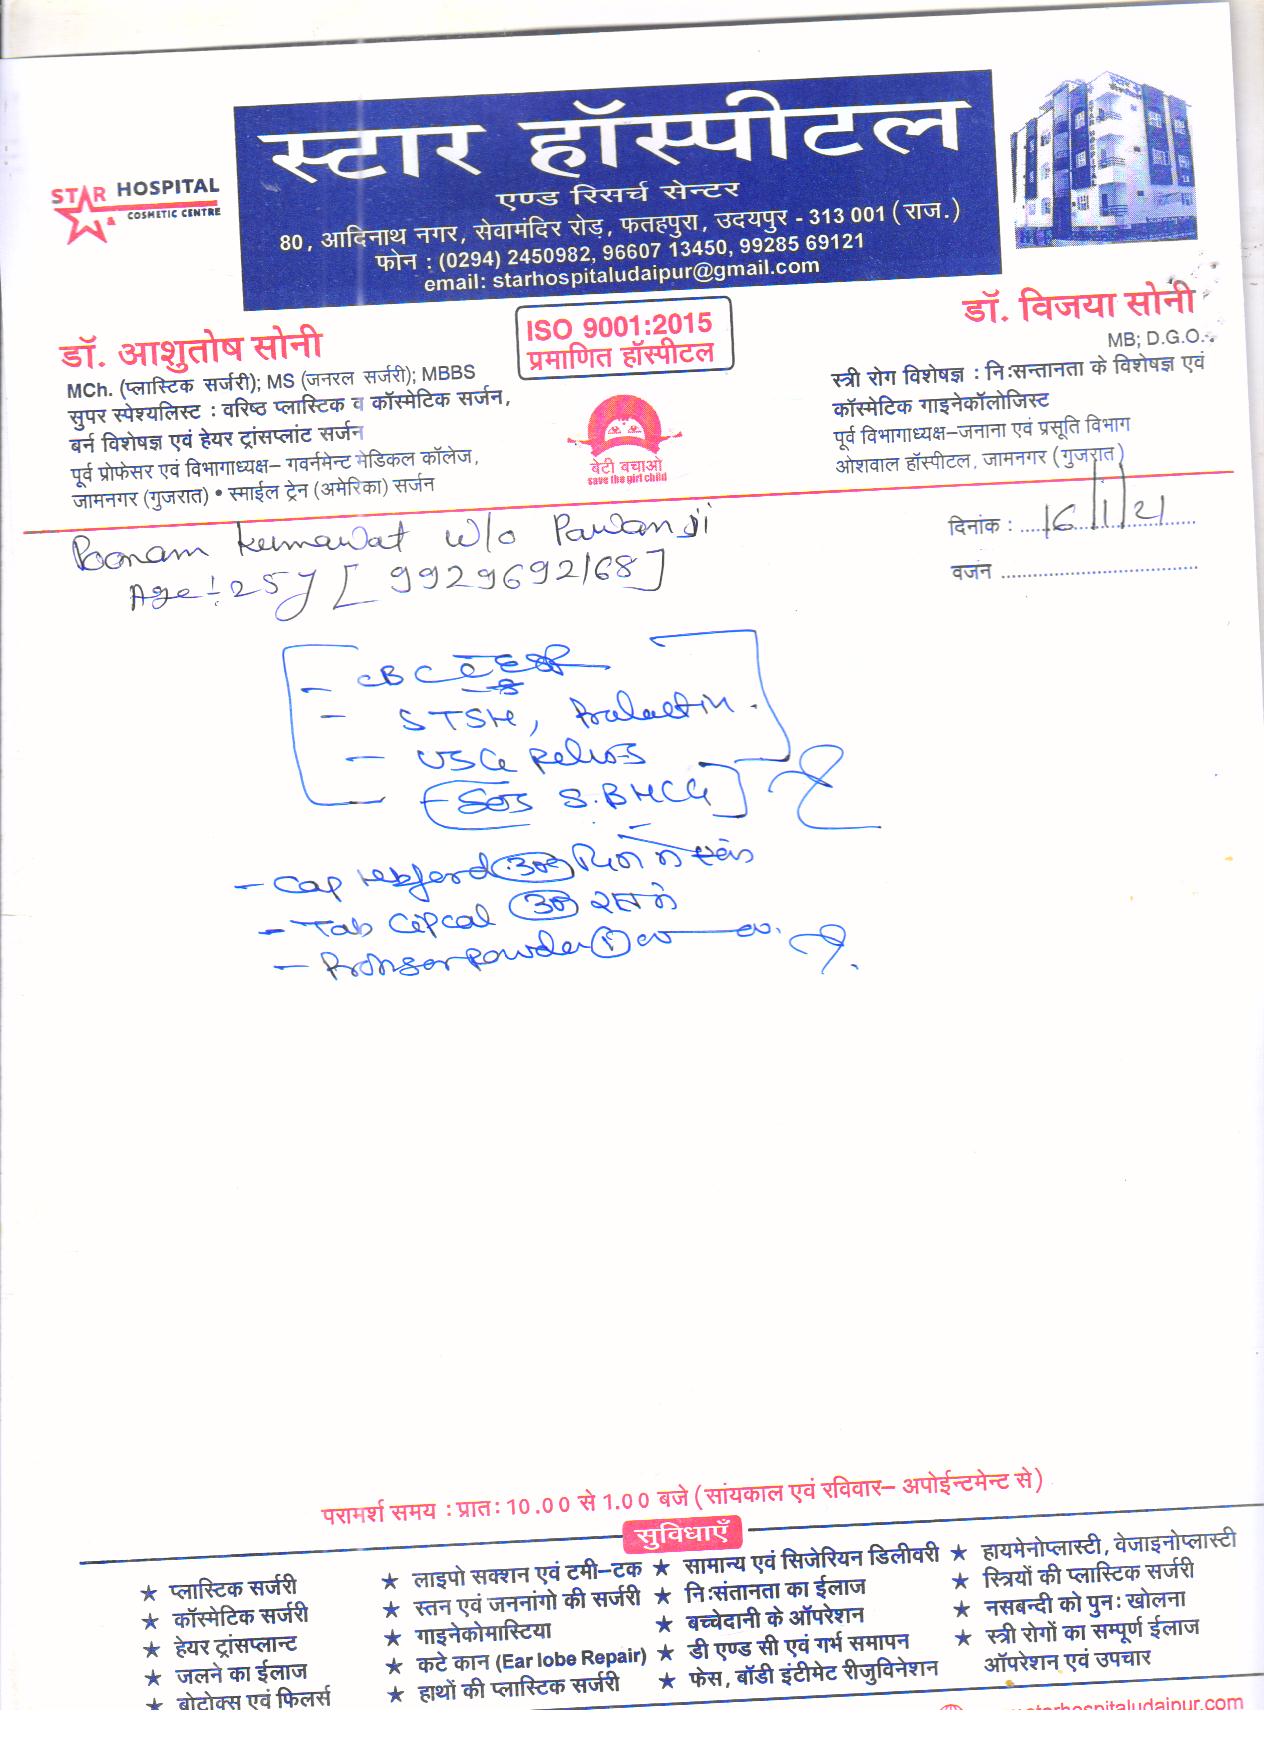 स्टार हॉस्पीटल
एण्ड रिसर्च सेन्टर
80, आदिनाथ नगर, सेवामंदिर रोड़, फतहपुरा, उदयपुर - 313 001 (राज.)
फोन : (0294) 2450982, 96607 13450, 99285 69121
email: starhospitaludaipur@gmail.com
STAR HOSPITAL
& COSMETIC CENTRE
ISO 9001:2015
प्रमाणित हॉस्पीटल
बेटी बचाओ
save the girl child
डॉ. आशुतोष सोनी
MCh. (प्लास्टिक सर्जरी); MS (जनरल सर्जरी); MBBS
सुपर स्पेश्यलिस्ट : वरिष्ठ प्लास्टिक व कॉस्मेटिक सर्जन,
बर्न विशेषज्ञ एवं हेयर ट्रांसप्लांट सर्जन
पूर्व प्रोफेसर एवं विभागाध्यक्ष– गवर्नमेन्ट मेडिकल कॉलेज,
जामनगर (गुजरात) • स्माईल ट्रेन (अमेरिका) सर्जन
डॉ. विजया सोनी
MB; D.G.O.
स्त्री रोग विशेषज्ञ : निःसन्तानता के विशेषज्ञ एवं
कॉस्मेटिक गाइनेकॉलोजिस्ट
पूर्व विभागाध्यक्ष–जनाना एवं प्रसूति विभाग
ओशवाल हॉस्पीटल, जामनगर (गुजरात)
दिनांक : 16/1/21
वजन
Poonam Kumawat w/o Pawan ji
Age :- 25y [9929692168]
- CBC
- STSH, Prolactin.
- USG Pelvis
[SOS S.BHCG]
- Cap दिन में
- Tab Cipcal रात में
- powder
परामर्श समय : प्रातः 10.00 से 1.00 बजे (सांयकाल एवं रविवार– अपोईन्टमेन्ट से)
सुविधाएँ
★ प्लास्टिक सर्जरी
★ कॉस्मेटिक सर्जरी
★ हेयर ट्रांसप्लान्ट
★ जलने का ईलाज
★ बोटोक्स एवं फिलर्स
★ लाइपो सक्शन एवं टमी–टक
★ स्तन एवं जननांगो की सर्जरी
★ गाइनेकोमास्टिया
★ कटे कान (Ear lobe Repair)
★ हाथों की प्लास्टिक सर्जरी
★ सामान्य एवं सिजेरियन डिलीवरी
★ निःसंतानता का ईलाज
★ बच्चेदानी के ऑपरेशन
★ डी एण्ड सी एवं गर्भ समापन
★ फेस, बॉडी इंटीमेट रीजुविनेशन
★ हायमेनोप्लास्टी, वेजाइनोप्लास्टी
★ स्त्रियों की प्लास्टिक सर्जरी
★ नसबन्दी को पुनः खोलना
★ स्त्री रोगों का सम्पूर्ण ईलाज
ऑपरेशन एवं उपचार
starhospitaludaipur.com